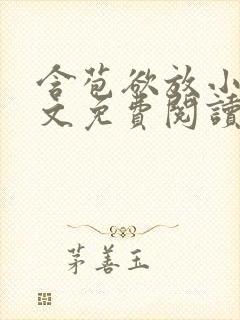 含苞欲放小
文免費閱讀
茅善玉